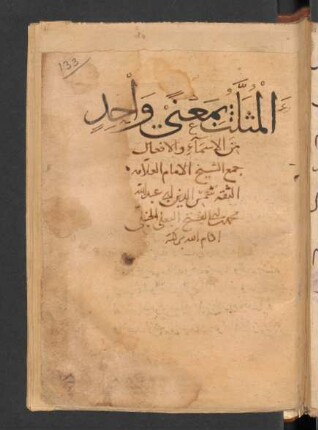 133
المثلث بمعنى واحد
من الاسماء والافعال
جمع الشيخ الامام العلامة
الثقة شمس الدين ابي عبد الله
محمد بن ابي الفتح البعلي الحنبلي